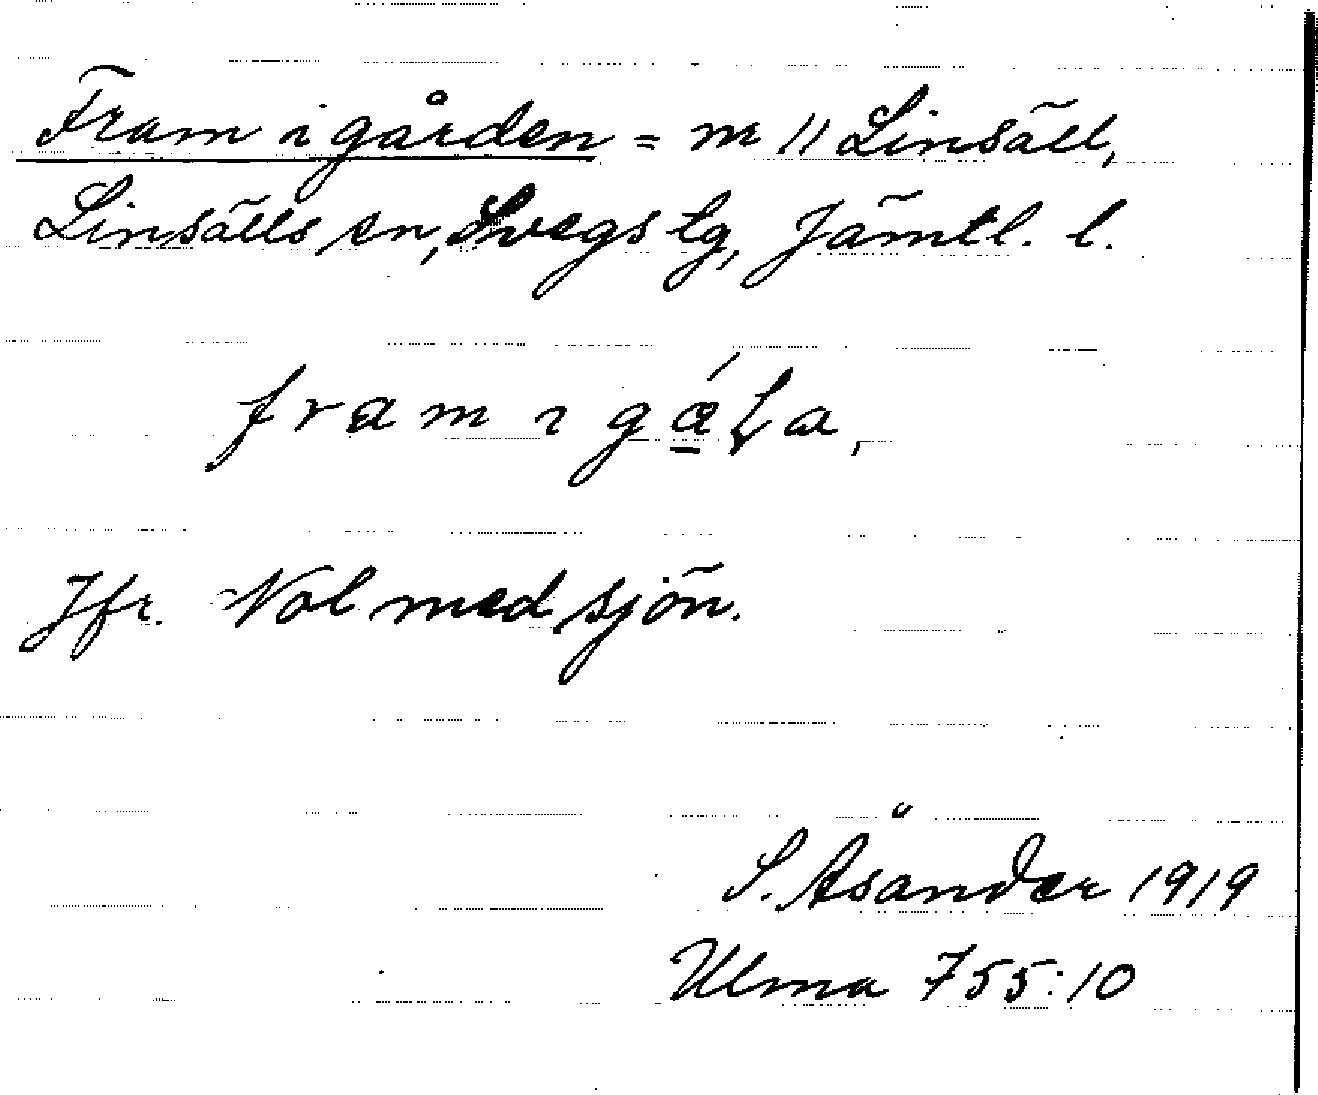 Fram i gården = nr 11 Linsäll,
Linsälls sn, Svegs tg, Jämtl. l.
fram ı gáƚa,
Jfr. Nol med sjön.
S. Åsander 1919
Ulma 755:10